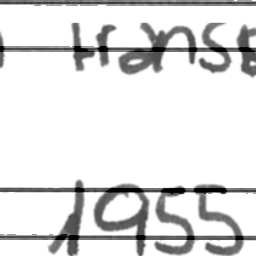 trans
1955